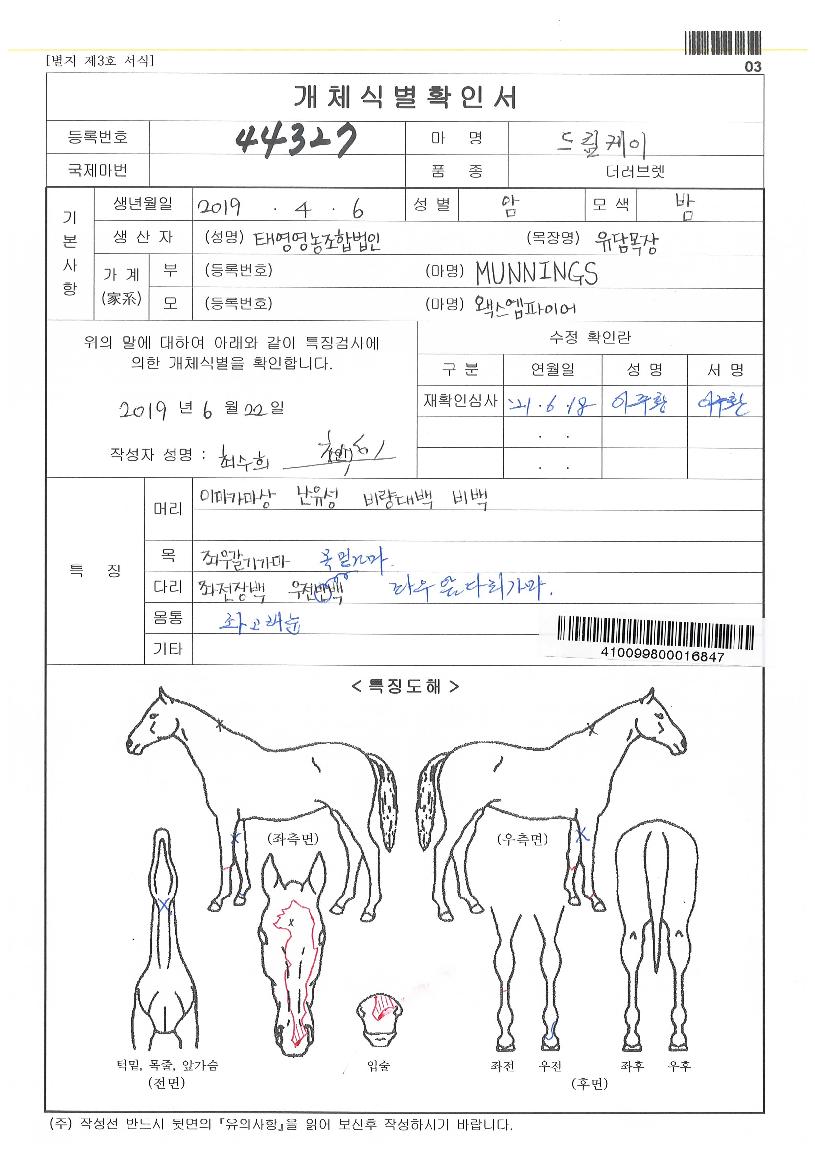 [별지 제3호 서식]
03
개체식별확인서
등록번호 44327 마 명 드림케이
국제마번 품 종 더러브렛
기본사항
생년월일 2019 . 4 . 6 성 별 암 모 색 밤
생 산 자 (성명) 태영영농조합법인 (목장명) 유담목장
가 계 (家系) 부 (등록번호) (마명) MUNNINGS
모 (등록번호) (마명) 왝스엠파이어
위의 말에 대하여 아래와 같이 특징검사에
의한 개체식별을 확인합니다.
2019 년 6 월 22 일
작성자 성명 : 최수희
수정 확인란
구 분 연월일 성 명 서 명
재확인심사 '21 . 6 . 18 이주환 이주환
. .
. .
특 징
머리 이마가마상 난유성 비량대백 비백
목 좌우갈기가마 목밑가마.
다리 좌전장백 좌우앞다리가마.
몸통 좌고래눈
기타
410099800016847
< 특징도해 >
(좌측면) (우측면)
턱밑, 목줄, 앞가슴
(전면)
입술
좌전 우전 좌후 우후
(후면)
(주) 작성선 반느시 뒷면의 『유의사항』을 읽어 보신후 작성하시기 바랍니다.